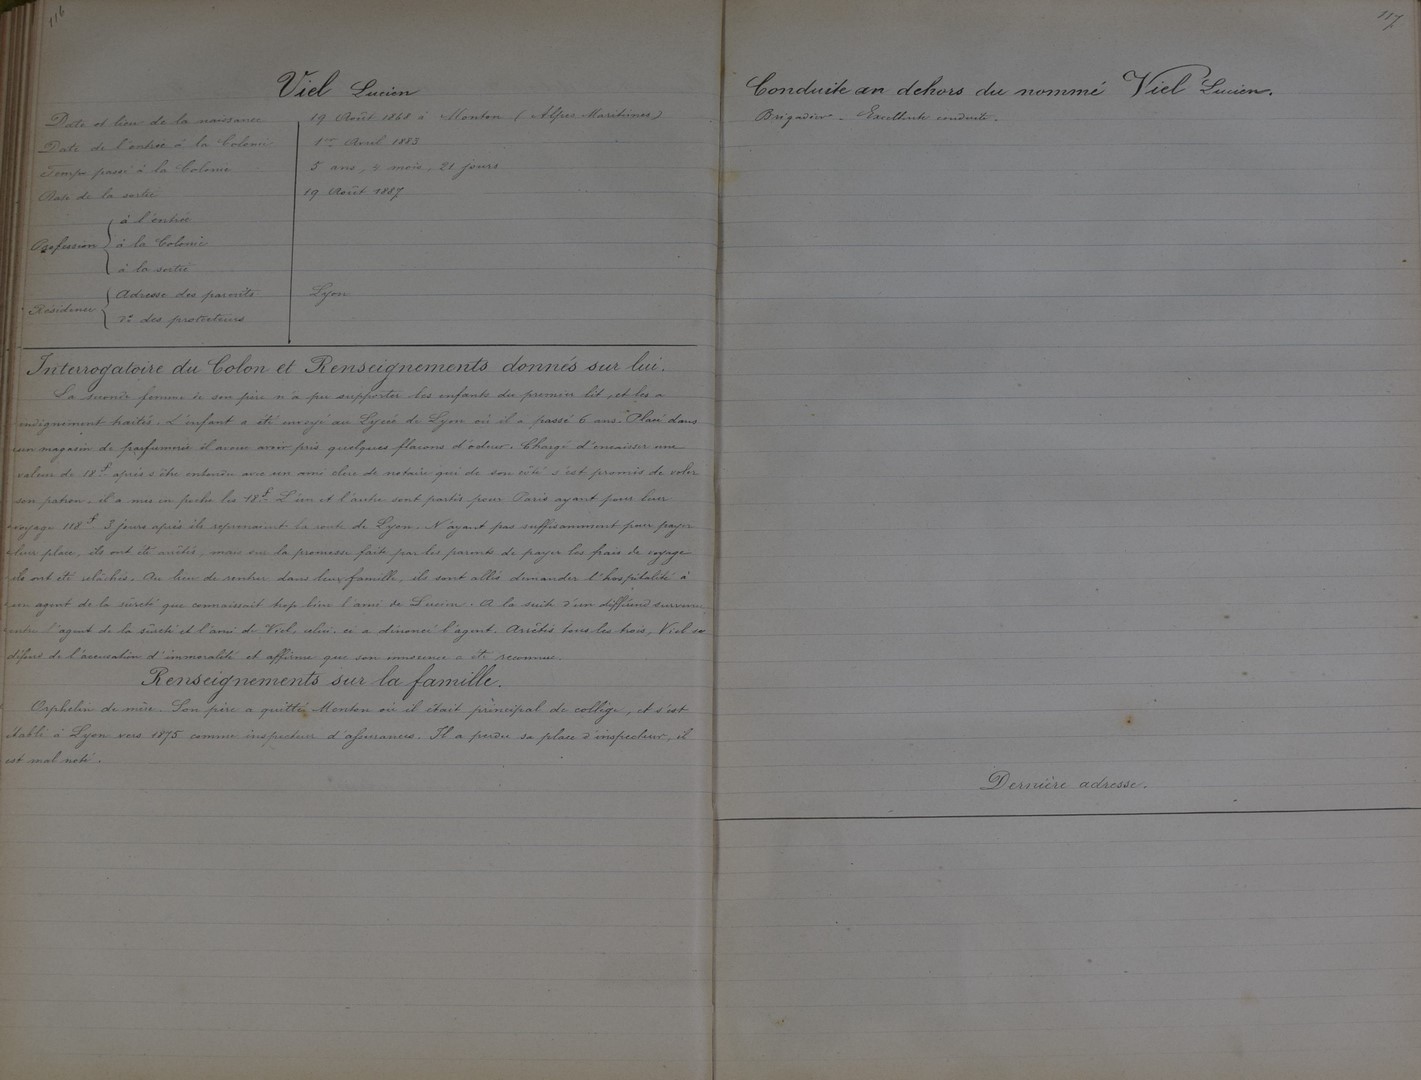 116
Viel Lucien
Date et lieu de la naissance 19 Août 1868 à Menton (Alpes Maritimes)
Date de l'entrée à la Colonie 1er Avril 1883
Temps passé à la Colonie 5 ans, 4 mois, 21 jours
Date de la sortie 19 Août 1887
Profession à l'entrée
à la Colonie
à la sortie
Résidence Adresse des parents Lyon
do des protecteurs
Interrogatoire du Colon et Renseignements donnés sur lui.
La seconde femme de son père n'a pu supporter les enfants du premier lit, et les a
indignement traités. L'enfant a été envoyé au Lycée de Lyon où il a passé 6 ans. Placé dans
un magasin de parfumerie il avoue avoir pris quelques flacons d'odeur. Chargé d'encaisser une
valeur de 18f après s'être entendu avec un ami clerc de notaire qui de son côté s'est promis de voler
son patron - il a mis en poche les 18f. L'un et l'autre sont partis pour Paris ayant pour leur
voyage 118f. 3 jours après ils reprenaient la route de Lyon. N'ayant pas suffisamment pour payer
leur place, ils ont été arrêtés, mais sur la promesse faite par les parents de payer les frais de voyage
ils ont été relâchés. Au lieu de rentrer dans leur famille, ils sont allés demander l'hospitalité à
un agent de la sûreté que connaissait trop bien l'ami de Lucien. A la suite d'un différend survenu
entre l'agent de la sûreté et l'ami de Viel, celui-ci a dénoncé l'agent. Arrêtés tous les trois, Viel se
défend de l'accusation d'immoralité et affirme que son innocence a été reconnue.
Renseignements sur la famille.
Orphelin de mère. Son père a quitté Menton où il était principal de collège, et s'est
établi à Lyon vers 1875 comme inspecteur d'assurances. Il a perdu sa place d'inspecteur, il
est mal noté.
117
Conduite en dehors du nommé Viel Lucien.
Brigadier - Excellente conduite.
Dernière adresse.